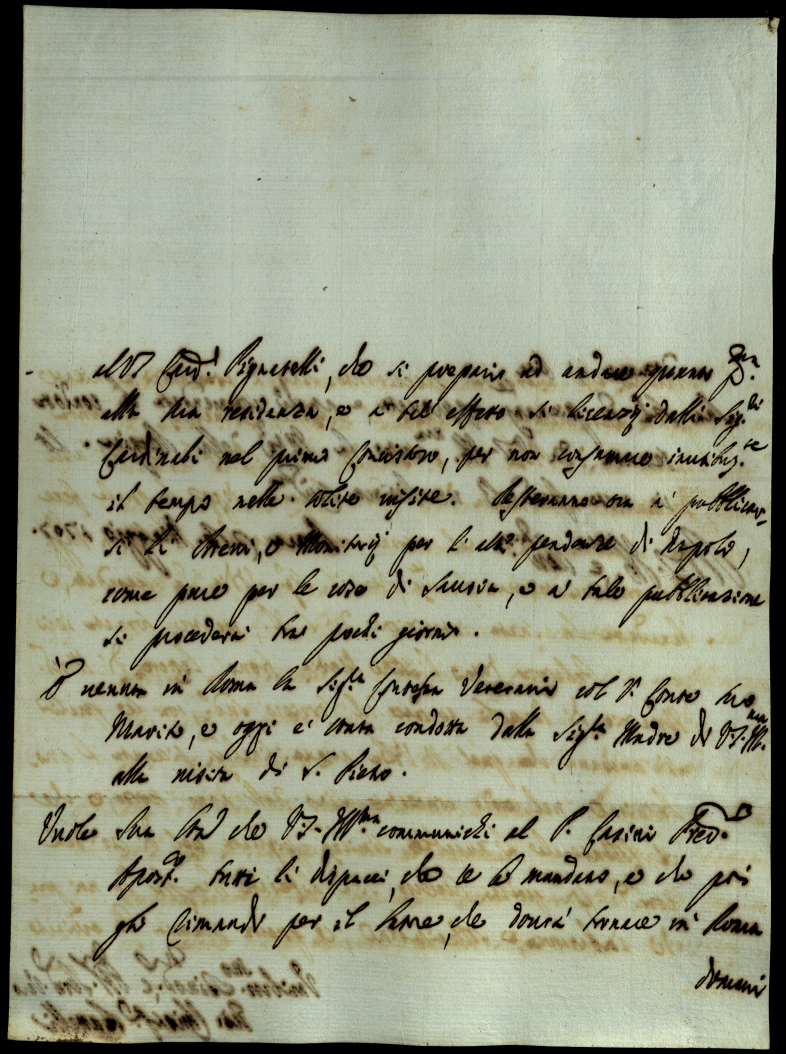 al Sr Card.l Pignatelli, che si prepari ad andare quanto p.a
alla sua residenza, e a tal effetto si licenzij dalli Sig.ri
Cardinali nel primo Concistoro, per non consumare inutilm.te
il tempo nelle solite visite. Resteranno ora à pubblicar-
si li Brevi, e Monitorij per l'alt.e pendenze di Napoli,
come pure per le cose di Sausia, e a tale pubblicazione
si procederà tra pochi giorni.
È venuta in Roma la Sig.ra Contessa Veterani col Sr. Conte suo
Marito, e oggi è stata condotta dalla Sig.ra Madre di V.S. Ill.ma
alla visita di S. Pietro.
Vuole Sua S.tà che V.S. Ill.ma communichi al P. Casini Pred.re
Apost.co tutti li dispacci, che se li mandano, e che poi
gli rimandi per il latore, che dovrà tornare in Roma
domani